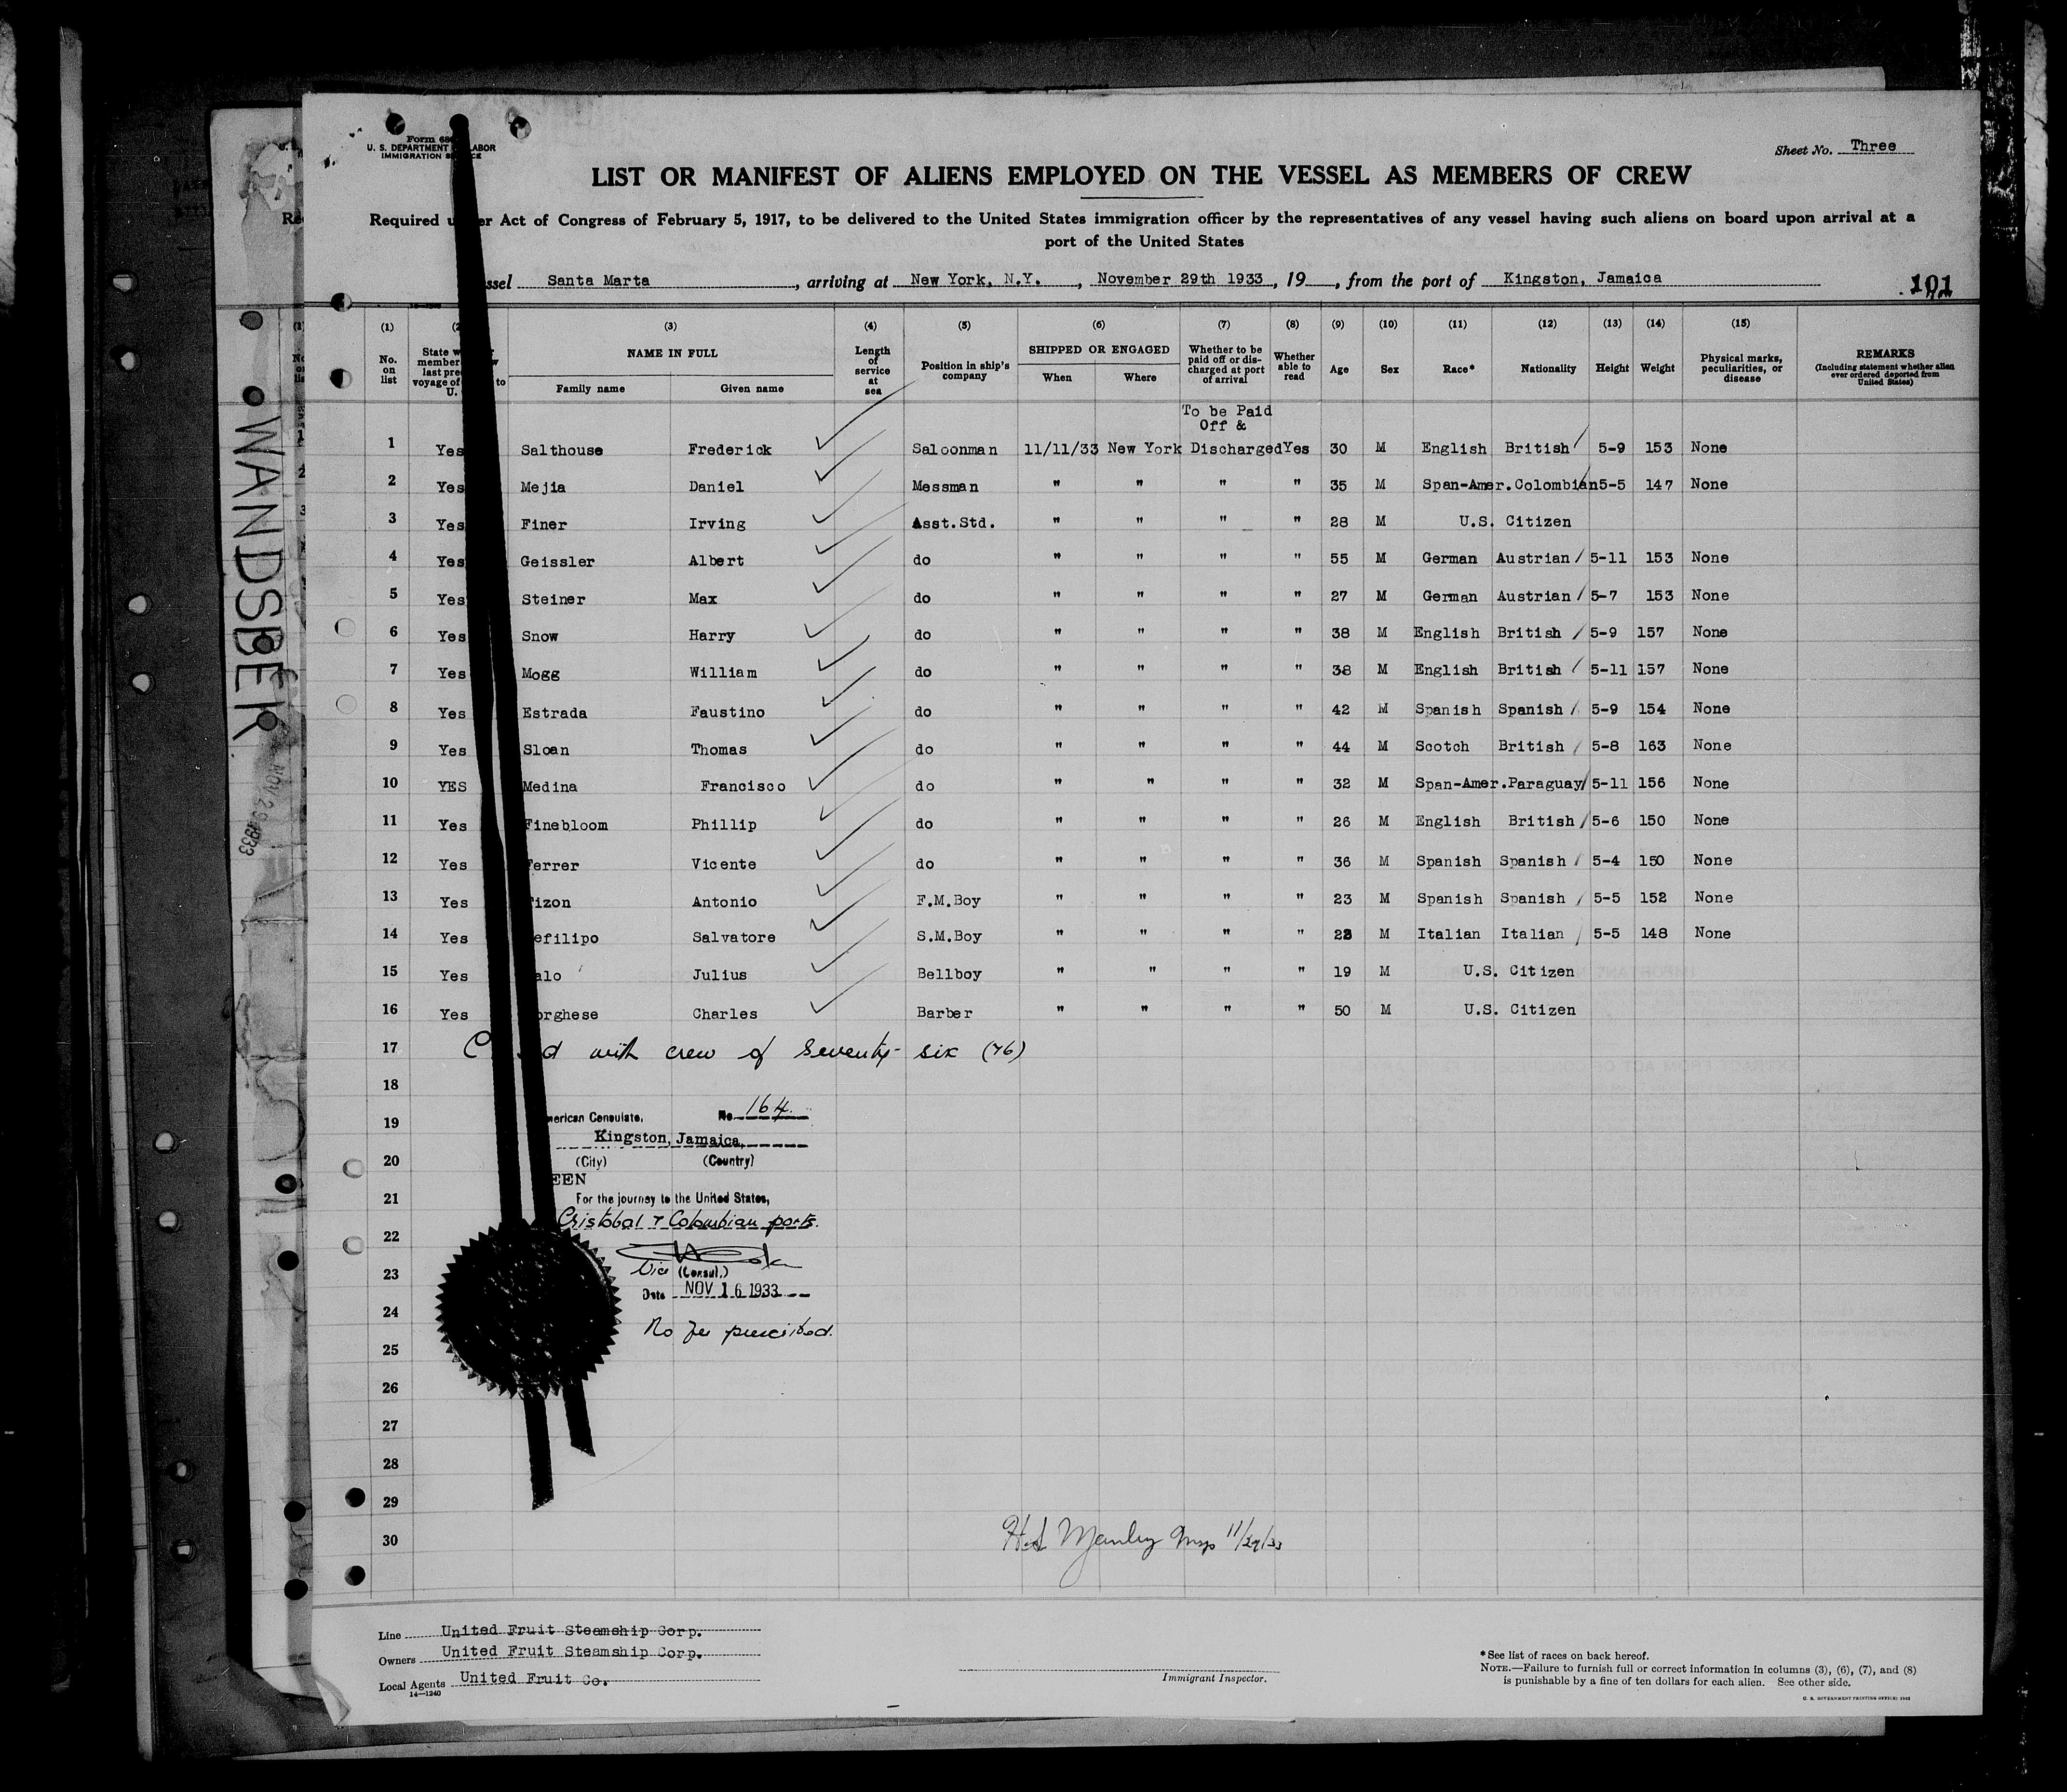 Sheet No. Three
U. S. DEPARTMENT LABOR
IMMIGRATION
LIST OR MANIFEST OF ALIENS EMPLOYED ON THE VESSEL AS MEMBERS OF CREW
Required under Act of Congress of February 5, 1917, to be delivered to the United States immigration officer by the representatives of any vessel having such aliens on board upon arrival at a
port of the United States
Vessel Santa Marta, arriving at New York, N.Y., November 29th 1933, 19, from the port of Kingston, Jamaica
101
(1) (3) (4) (5) (6) (7) (8) (9) (10) (11) (12) (13) (14) (15)
No. on list NAME IN FULL Family name Given name Length of service at sea Position in ship's company SHIPPED OR ENGAGED When Where Whether to be paid off or discharged at port of arrival Whether able to read Age Sex Race* Nationality Height Weight Physical marks, peculiarities, or disease REMARKS (Including statement whether alien ever ordered deported from United States)
To be Paid
Off &
1 Yes Salthouse Frederick Saloonman 11/11/33 New York Discharged Yes 30 M English British 5-9 153 None
2 Yes Mejia Daniel Messman " " " " 35 M Span-Amer. Colombian 5-5 147 None
3 Yes Finer Irving Asst.Std. " " " " 28 M U.S. Citizen
4 Yes Geissler Albert do " " " " 55 M German Austrian 5-11 153 None
5 Yes Steiner Max do " " " " 27 M German Austrian 5-7 153 None
6 Yes Snow Harry do " " " " 38 M English British 5-9 157 None
7 Yes Mogg William do " " " " 38 M English British 5-11 157 None
8 Yes Estrada Faustino do " " " " 42 M Spanish Spanish 5-9 154 None
9 Yes Sloan Thomas do " " " " 44 M Scotch British 5-8 163 None
10 YES Medina Francisco do " " " " 32 M Span-Amer. Paraguay 5-11 156 None
11 Yes Finebloom Phillip do " " " " 26 M English British 5-6 150 None
12 Yes Ferrer Vicente do " " " " 36 M Spanish Spanish 5-4 150 None
13 Yes izon Antonio F.M.Boy " " " " 23 M Spanish Spanish 5-5 152 None
14 Yes efilipo Salvatore S.M.Boy " " " " M Italian Italian 5-5 148 None
15 Yes alo Julius Bellboy " " " " 19 M U.S. Citizen
16 Yes orghese Charles Barber " " " " 50 M U.S. Citizen
17 with crew of seventy-six (76)
18
19 American Consulate, No. 164.
Kingston, Jamaica
20 (City) (Country)
EEN
21 For the journey to the United States,
Cristobal & Colombian ports.
22
23 Vice (Consul.)
Date NOV 16 1933
24
No fee prescribed.
25
26
27
28
29
30 Manley Insp 11/29/33
Line United Fruit Steamship Corp.
Owners United Fruit Steamship Corp.
Local Agents United Fruit Co.
14—1240
Immigrant Inspector.
*See list of races on back hereof.
NOTE.—Failure to furnish full or correct information in columns (3), (6), (7), and (8)
is punishable by a fine of ten dollars for each alien. See other side.
WANDSBEK
NOV 29 1933